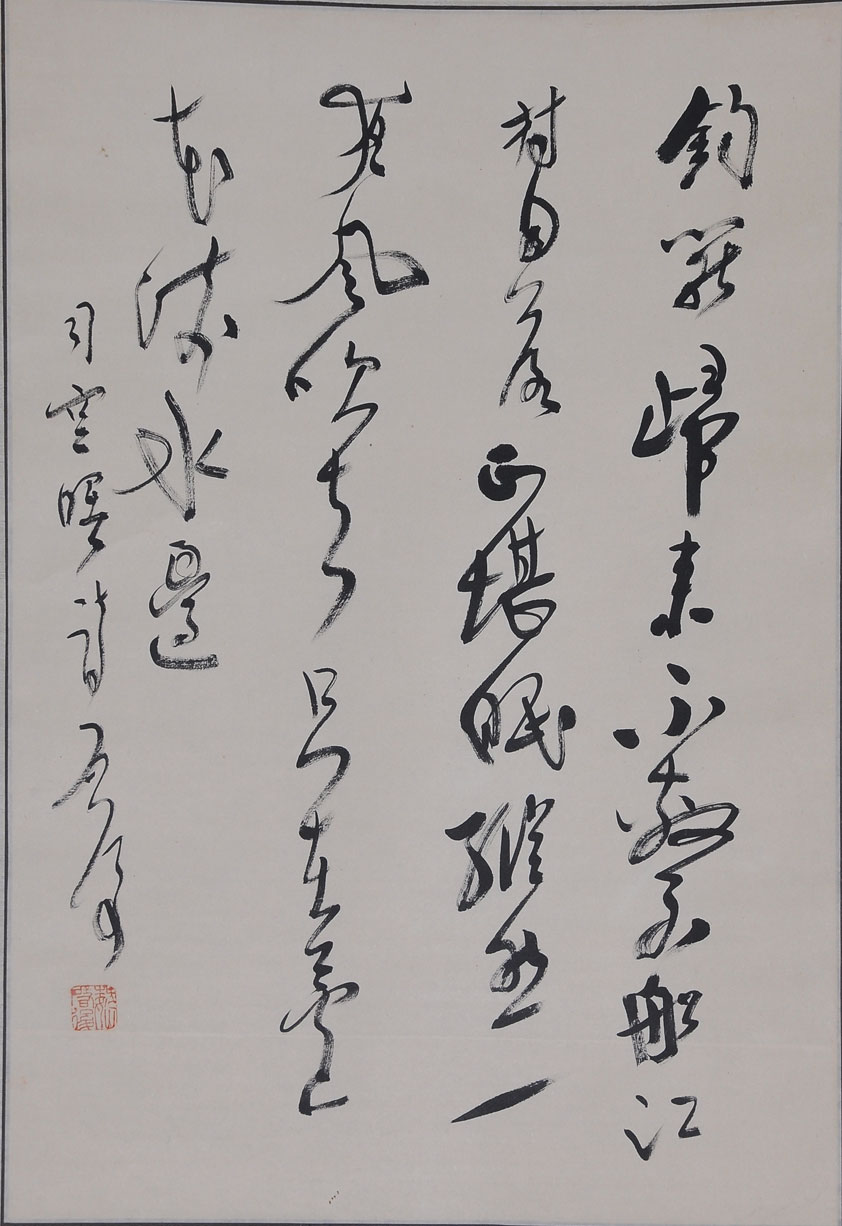 釣罷歸來不繫船江
村月落正堪眠縱然一
夜風吹去只在蘆
花淺水邊
司空曙詩